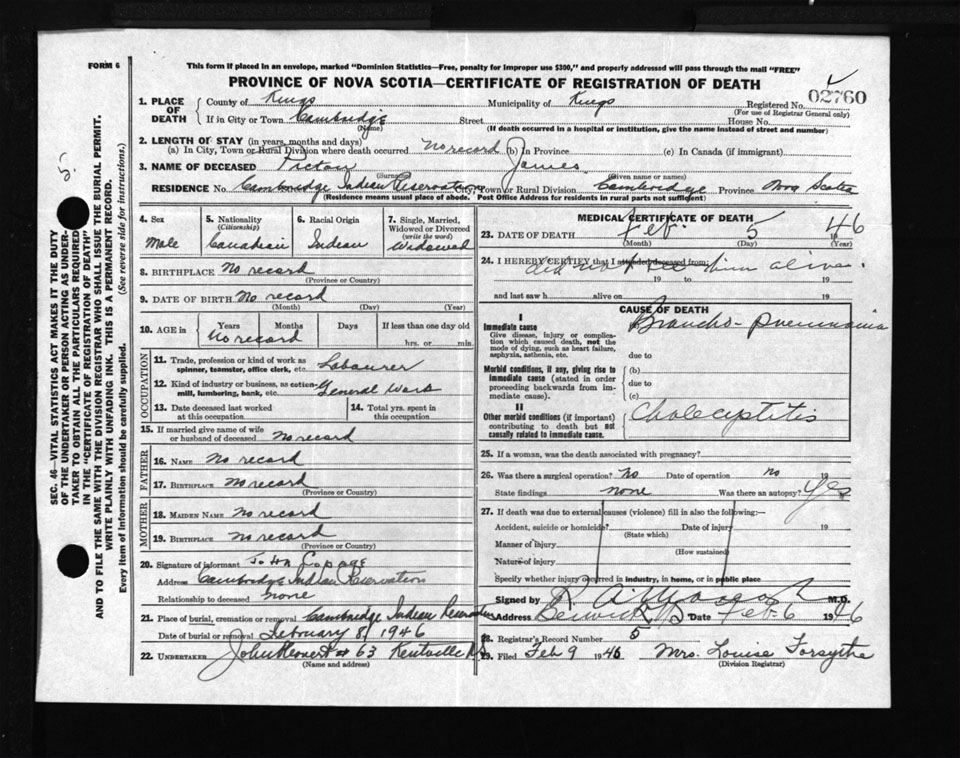 FORM 6
This form if placed in an envelope, marked "Dominion Statistics—Free, penalty for improper use $300," and properly addressed will pass through the mail "FREE"
PROVINCE OF NOVA SCOTIA—CERTIFICATE OF REGISTRATION OF DEATH
02760
1. PLACE OF DEATH
County of Kings Municipality of Kings Registered No.
(For use of Registrar General only)
If in City or Town Cambridge Street House No.
(Name) (If death occurred in a hospital or institution, give the name instead of street and number)
2. LENGTH OF STAY (in years, months and days)
(a) In City, Town or Rural Division where death occurred No record (b) In Province (c) In Canada (if immigrant)
3. NAME OF DECEASED Pictou James
(Surname) (Given name or names)
RESIDENCE No. Cambridge Indian Reservation City, Town or Rural Division Cambridge Province Nova Scotia
(Residence means usual place of abode. Post Office Address for residents in rural parts not sufficient)
4. Sex
Male
5. Nationality
(Citizenship)
Canadian
6. Racial Origin
Indian
7. Single, Married, Widowed or Divorced
(write the word)
Widowed
8. BIRTHPLACE No record
(Province or Country)
9. DATE OF BIRTH No record
(Month) (Day) (Year)
10. AGE in
Years Months Days If less than one day old
No record hrs. or min.
OCCUPATION
11. Trade, profession or kind of work as spinner, teamster, office clerk, etc. Labourer
12. Kind of industry or business, as cotton-mill, lumbering, bank, etc. General Work
13. Date deceased last worked at this occupation
14. Total yrs. spent in this occupation
15. If married give name of wife or husband of deceased No record
FATHER
16. NAME No record
17. BIRTHPLACE No record
(Province or Country)
MOTHER
18. MAIDEN NAME No record
19. BIRTHPLACE No record
(Province or Country)
20. Signature of informant John
Address Cambridge Indian Reservation
Relationship to deceased none
21. Place of burial, cremation or removal Cambridge Indian Reservation
Date of burial or removal February 8, 1946
22. UNDERTAKER John # 63 Kentville NS
(Name and address)
MEDICAL CERTIFICATE OF DEATH
23. DATE OF DEATH Feb. 5 1946
(Month) (Day) (Year)
24. I HEREBY CERTIFY that I attended deceased from:
did not see him alive.
19 to 19
and last saw h alive on 19
CAUSE OF DEATH
I
Immediate cause
Give disease, injury or complication which caused death, not the mode of dying, such as heart failure, asphyxia, asthenia, etc.
Broncho-pneumonia
due to
Morbid conditions, if any, giving rise to immediate cause (stated in order proceeding backwards from immediate cause).
(b)
due to
(c)
II
Other morbid conditions (if important) contributing to death but not causally related to immediate cause.
Cholecystitis
25. If a woman, was the death associated with pregnancy?
26. Was there a surgical operation? No Date of operation no 19
State findings none Was there an autopsy? Yes
27. If death was due to external causes (violence) fill in also the following:—
Accident, suicide or homicide? Date of injury 19
(State which)
Manner of injury
(How sustained)
Nature of injury
Specify whether injury occurred in industry, in home, or in public place
Signed by R. A. M.D.
Address Berwick NS Date Feb-6 1946
28. Registrar's Record Number 5
29. Filed Feb 9 1946 Mrs. Louise Forsythe
(Division Registrar)
5.
SEC. 46—VITAL STATISTICS ACT MAKES IT THE DUTY
OF THE UNDERTAKER OR PERSON ACTING AS UNDER-
TAKER TO OBTAIN ALL THE PARTICULARS REQUIRED
IN THE "CERTIFICATE OF REGISTRATION OF DEATH"
AND TO FILE THE SAME WITH THE DIVISION REGISTRAR WHO SHALL ISSUE THE BURIAL PERMIT.
WRITE PLAINLY WITH UNFADING INK. THIS IS A PERMANENT RECORD.
Every item of information should be carefully supplied. (See reverse side for instructions.)